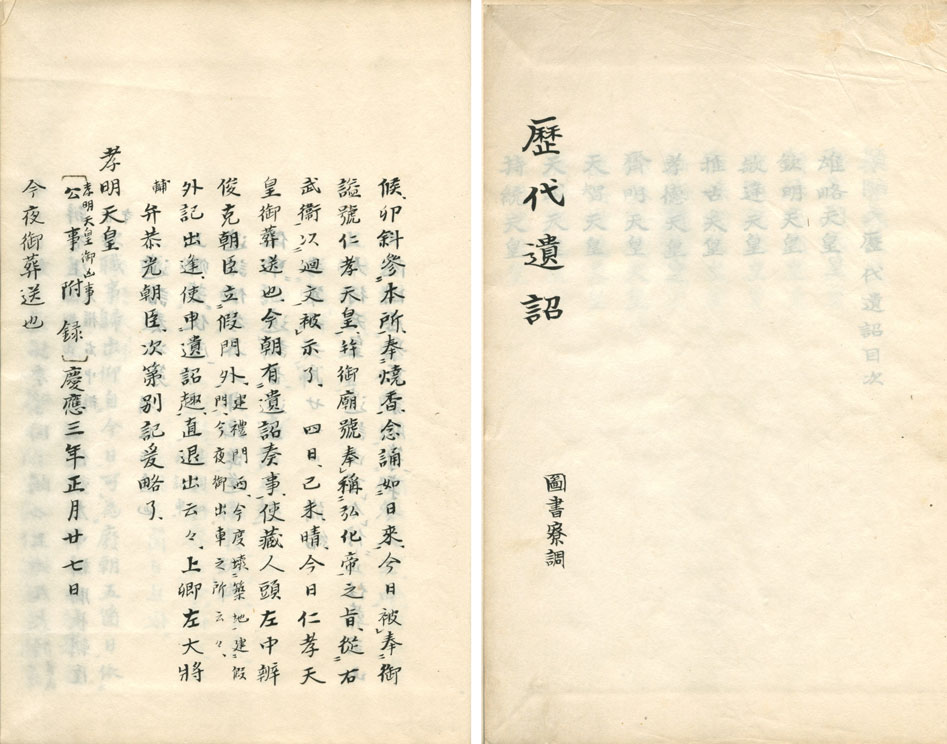 歷代遺詔
圖書寮調
候、卯斜參本所、奉燒香、念誦如日來、今日被奉御
諡號仁孝天皇、并御廟號奉稱弘化帝之旨、從右
武衞以廻文被示了、廿四日、己未、晴、今日仁孝天
皇御葬送也、今朝有遺詔奏事、使藏人頭左中辨
俊克朝臣立假門外、建禮門西、今度壞築地建假
門、今夜御出車之所云々、
外記出逢、使申遺詔趣、直退出云々、上卿左大將
輔
弁恭光朝臣次第別記爰略了、
孝明天皇
孝明天皇御凶事
〔公事附錄〕慶應三年正月廿七日
今夜御葬送也